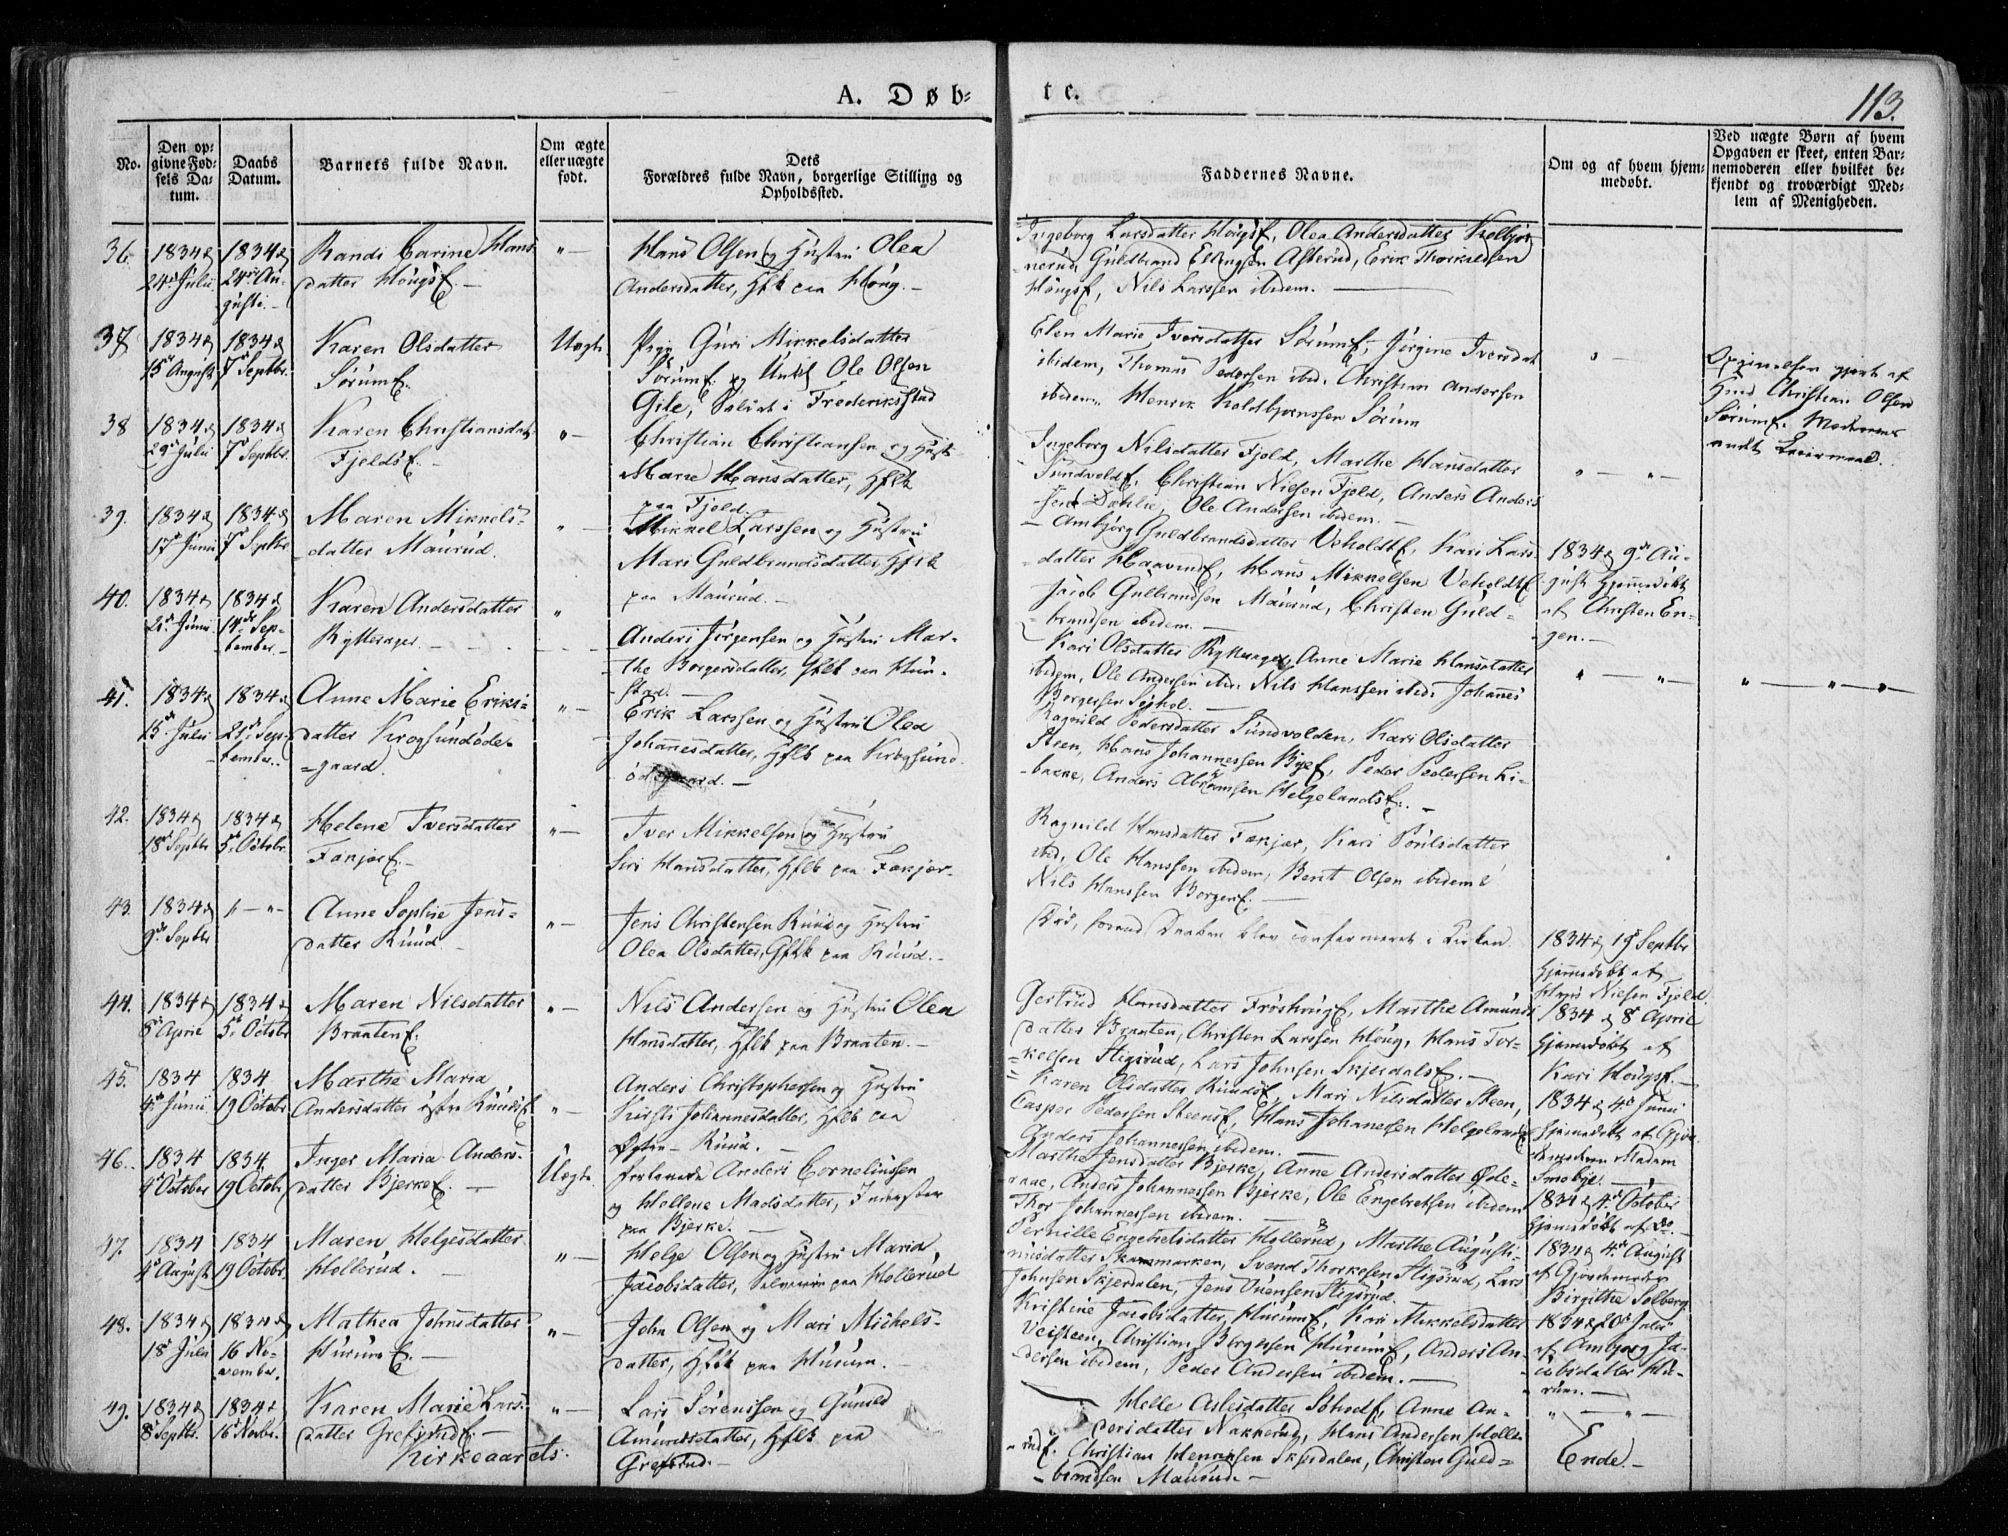 A. Døb=
te.
113.
No.
Den op=
givne Fød=
sels Da=
tum.
Daabs
Datum.
Barnets fulde Navn.
Om ægte
eller uægte
født.
Dets
Forældres fulde Navn, borgerlige Stilling og
Opholdssted.
Faddernes Navne.
Om og af hvem hjem=
medøbt.
Ved uægte Børn af hvem
Opgaven er skeet, enten Bar=
nemoderen eller hvilket be=
kjendt og troværdigt Med=
lem af Menigheden.
36.
1834
24 Julii
1834
24 Au-
gusti.
Randi Carine Hans
datter Höugs
"—
Hans Olsen og Hustru Olea
Andersdatter, Hflk paa Höug.
Ingeborg Larsdatter Höugs, Olea Andersdatter Kolbjør
nerud, Guldbrand Ellingsen Asterud, Erik Thorkildsen
Höugs, Nils Larssen ibidem.
37
1834
15 August
1834
7 Septbr.
Karen Olsdatter
Sörum
Uægte
Pige Guri Mikkelsdatter
Sörum og Unkl Ole Olsen
Gile, Soldat i Frederikstad
Elen Marie Iversdatter Sörum, Jörgine Iversdat
ibidem, Thomas Pedersen ibid. Christian Andersen
ibidem Henrik Koldbjørnssen Sörum
Christian Olsen
Sörum. Moderens
andet Leiermaal.
38
1834
29 Julii
1834
7 Septbr.
Karen Christiansdat
Fjelds
"—
Christian Christiansen og Hustr
Marie Hansdatter, Hflk
paa Fjeld.
Ingeborg Nilsdatter Fjeld, Marthe Hansdatter
Sundvold, Christian Nilsen Fjeld, Anders Anders
sen Dæhlie, Ole Andersen ibidem.
" — " —
39.
1834
17 Junii
1834
7 Septbr
Maren Mikkels-
datter Maurud.
"—
Mikkel Larssen og Hustru
Mari Guldbrandsdatter Hflk
paa Maurud.
Ambjørg Guldbrandsdatter Veholdt, Kari Lars
datter Haavind, Hans Mikkelsen Veholdt
Jacob Gulbrandsen Maurud, Christen Guld=
brandsen ibidem.
1834 9 Au-
gust Hjemmedöbt
af Christen En-
gen.
40.
1834
21 Junii
1834
14 Sep-
tember
Karen Andersdatter
Rytterager.
"
Anders Jörgensen og Hustru Mar-
the Borgersdatter, Hflk paa Hun-
stad.
Kari Olsdatter Rytterager, Anne Marie Hansdatter
ibidem, Ole Andersen ibid. Nils Hanssen ibid. Johanes
Borgersen
" — " —
" — " — " —
41.
1834
15 Julii
1834
21 Sep-
tember.
Anne Marie Eriks-
datter Krogsundöde-
=gaard.
"—
Erik Larssen og Hustru Olea
Johannesdatter, Hflk paa Krogsund
ödegaard.
Ragnild Pedersdatter Sundvolden, Kari Olsdatter
Steen, Hans Johannessen Bye, Peder Pedersen Li-
bakke, Anders Abramsen Helgelands
42.
1834
18 Septbr
1834
5 Octobr
Helene Iversdatter
Fækjær
"—
Iver Mikkelsen og Hustru
Siri Hansdatter, Hflk paa Fækjær-
Ragnild Hansdatter Fækjær, Kari Poulsdatter
ibid, Ole Hanssen ibidem, Berit Olsen ibidem
Nils Hanssen Borgen
43.
1834
9 Septbr
"— "-
Anne Sophie Jens-
datter Ruud
"—
Jens Christensen Ruud og Hustru
Olea Olsdatter, Gflk paa Ruud.
Död, forend Daaben blev confirmeret i Kirken
1834 19 Septbr
Hjemmedöbt af
Hans Nielsen Fjeld.
44.
1834
8 April
1834
5 Octobr
Maren Nilsdatter
Braaten
"—
Nils Andersen og Hustru Olea
Hansdatter, Hflk paa Braaten.
Gertrud Hansdatter Fröshoug, Marthe Amunds
datter Braaten, Christen Larssen Höug, Hans Tor-
kelsen Stigsrud, Lars Johnsen Skjerdals
1834 8 April
hjemmedöbt af
Kari Höugs.
45.
1834
4 Junii
1834
19 Octobr.
Marthe Maria
Andersdatter östre Ruud
"—
Anders Christophersen og Hustru
Kirsti Johannesdatter, Hflk paa
Östre Ruud.
Karen Olsdatter Ruuds, Mari Nilsdatter Steen,
Casper Pedersen Steens, Hans Johanesen Helgeland
Anders Johannessen ibidem.
1834 4 Junii
hjemmedöbt af Gjor
demoderen Madam
Smebye.
46.
1834
4 October
1834
19 Octobr
Inger Maria Anders-
datter Bjerke
Uægte
forlovede Anders Corneliussen
og Hellene Madsdatter, Inderster
paa Bjerke.
Marthe Jensdatter Bjerke, Anne Andersdatter Öde-
Anders Johannessen Bjerke, Ole Engebretsen ibidem
Thor Johannessen ibidem.
1834 4 October
hjemmedöbt af do
47.
1834
4 August
1834
19 Octobr.
Maren Helgesdatter
Hollerud.
"—
Helge Olsen og Hustru Maria
Jacobsdatter, paa Hollerud
Pernille Engebretsdatter Hollerud, Marthe Augusti-
nusdatter Skammarken, Svend Thorkesen Stigsrud, Lars
Johnsen Skjerdalen, Jens Svensen Stigsrud.
1834 4 August
af Gjordemoder
Birgithe Solberg
48.
1834
18 Julii
1834
16 No-
vember.
Mathea Johnsdatter
Hurum
"—
John Olsen og Mari Michels-
datter, Hflk paa Hurum.
Kristine Jacobsdatter Hurum, Kari Mikkelsdatter
Veisteen, Christian Borgersen Hurum, Anders An-
dersen ibidem, Peder Andersen ibidem.
1834 20 Julii
af Ambjørg Ja-
cobsdatter Hu-
rum.
49.
1834
8 Septbr.
1834
16 Novbr.
Karen Marie Lars-
datter Grefsrud
"—
Lars Sörenssen og Gunild
Amundsdatter, Hflk paa
Grefsrud.
Helle Aslesdatter Solvold, Anne An-
dersdatter Nakkerud, Hans Andersen Holle-
rud. Christian Henriksen Skjerdalen, Christen Guld=
brandsen Maurud.
" — " —
Kirkeaarets
Ende.